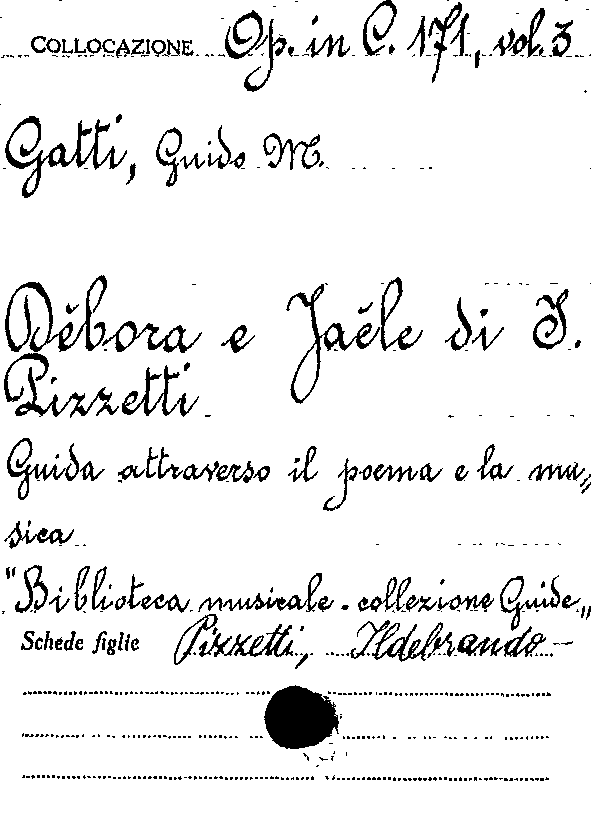 COLLOCAZIONE Op. in C. 171, vol. 3
Gatti, Guido M.
Dèbora e Jaéle di I.
Pizzetti
Guida attraverso il poema e la mu„
sica
"Biblioteca musicale - collezione Guide„
Schede figlie Pizzetti, Ildebrando -